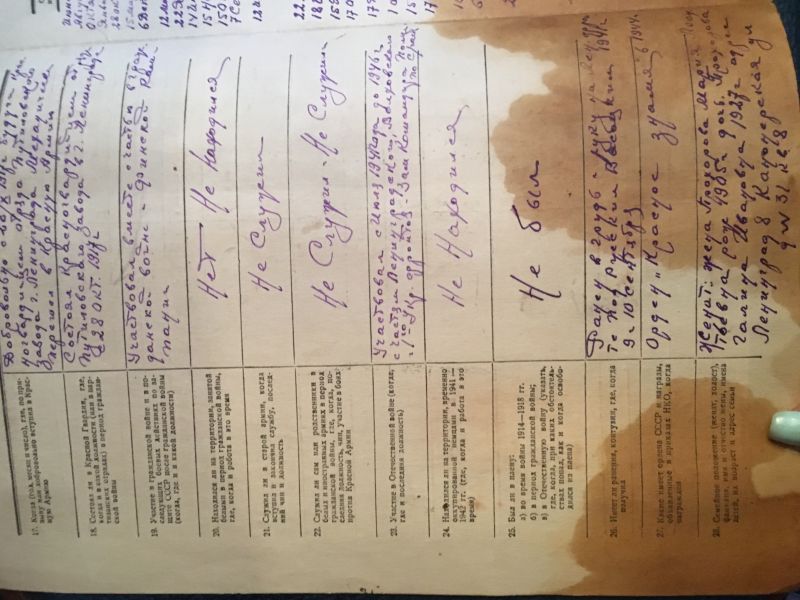 17. Когда (год, месяц и число), где, по призыву или добровольно вступил в Красную Армию
Добровольно
завода г. Ленинграда
перешел в Красную Армию
18. Состоял ли в Красной Гвардии, где, когда и в какой должности (или в партизанских отрядах) в период гражданской войны
Состоял Красногвардейцем от
Путиловского завода в г. Ленинграде
с 28 окт. 1917 г
19. Участие в гражданской войне и в последующих боевых действиях по защите СССР после гражданской войны (когда, где и в какой должности)
Участвовал в граж-
данской войне и финской кам-
пании
20. Находился ли на территории, занятой белыми в период гражданской войны, где, когда и работа в это время
Нет Не находился
21. Служил ли в старой армии, когда вступил и закончил службу, последний чин и должность
Не Служил
22. Служил ли сам или родственники в белых и иностранных армиях в период гражданской войны, где, когда, последняя должность, чин, участие в боях против Красной Армии
Не Служил. Не Служили
23. Участие в Отечественной войне (когда, где и последняя должность)
Участвовал с 1941 года до 1946 г
с частям Ленинградского, Волховского
и 1го Укр. фронтов - Зам Командира Полка
по Строй
24. Находился ли на территории, временно оккупированной немцами в 1941—1942 гг. (где, когда и работа в это время)
Не Находился
25. Был ли в плену:
а) во время войны 1914—1918 гг.
б) в период гражданской войны;
в) в Отечественную войну (указать, где, когда, при каких обстоятельствах попал, как и когда освободился из плена)
Не был
26. Имеет ли ранения, контузии, где, когда получил
Ранен в грудь и руку на Лен. фрон-
те под 1941 г
9 и 10 сентября
27. Какие имеет ордена СССР и награды, объявленные в приказах НКО, когда награжден
Орден „Красное знамя" в 1944 г.
28. Семейное положение (женат, холост), фамилия, имя и отчество жены, имена детей, их возраст и адрес семьи
Женат: жена Прохорова Мария
1905 г дочь Прохорова
Галина Ивановна 1927 г
Ленинград 8 Канонерская ул
д № 31 кв 8